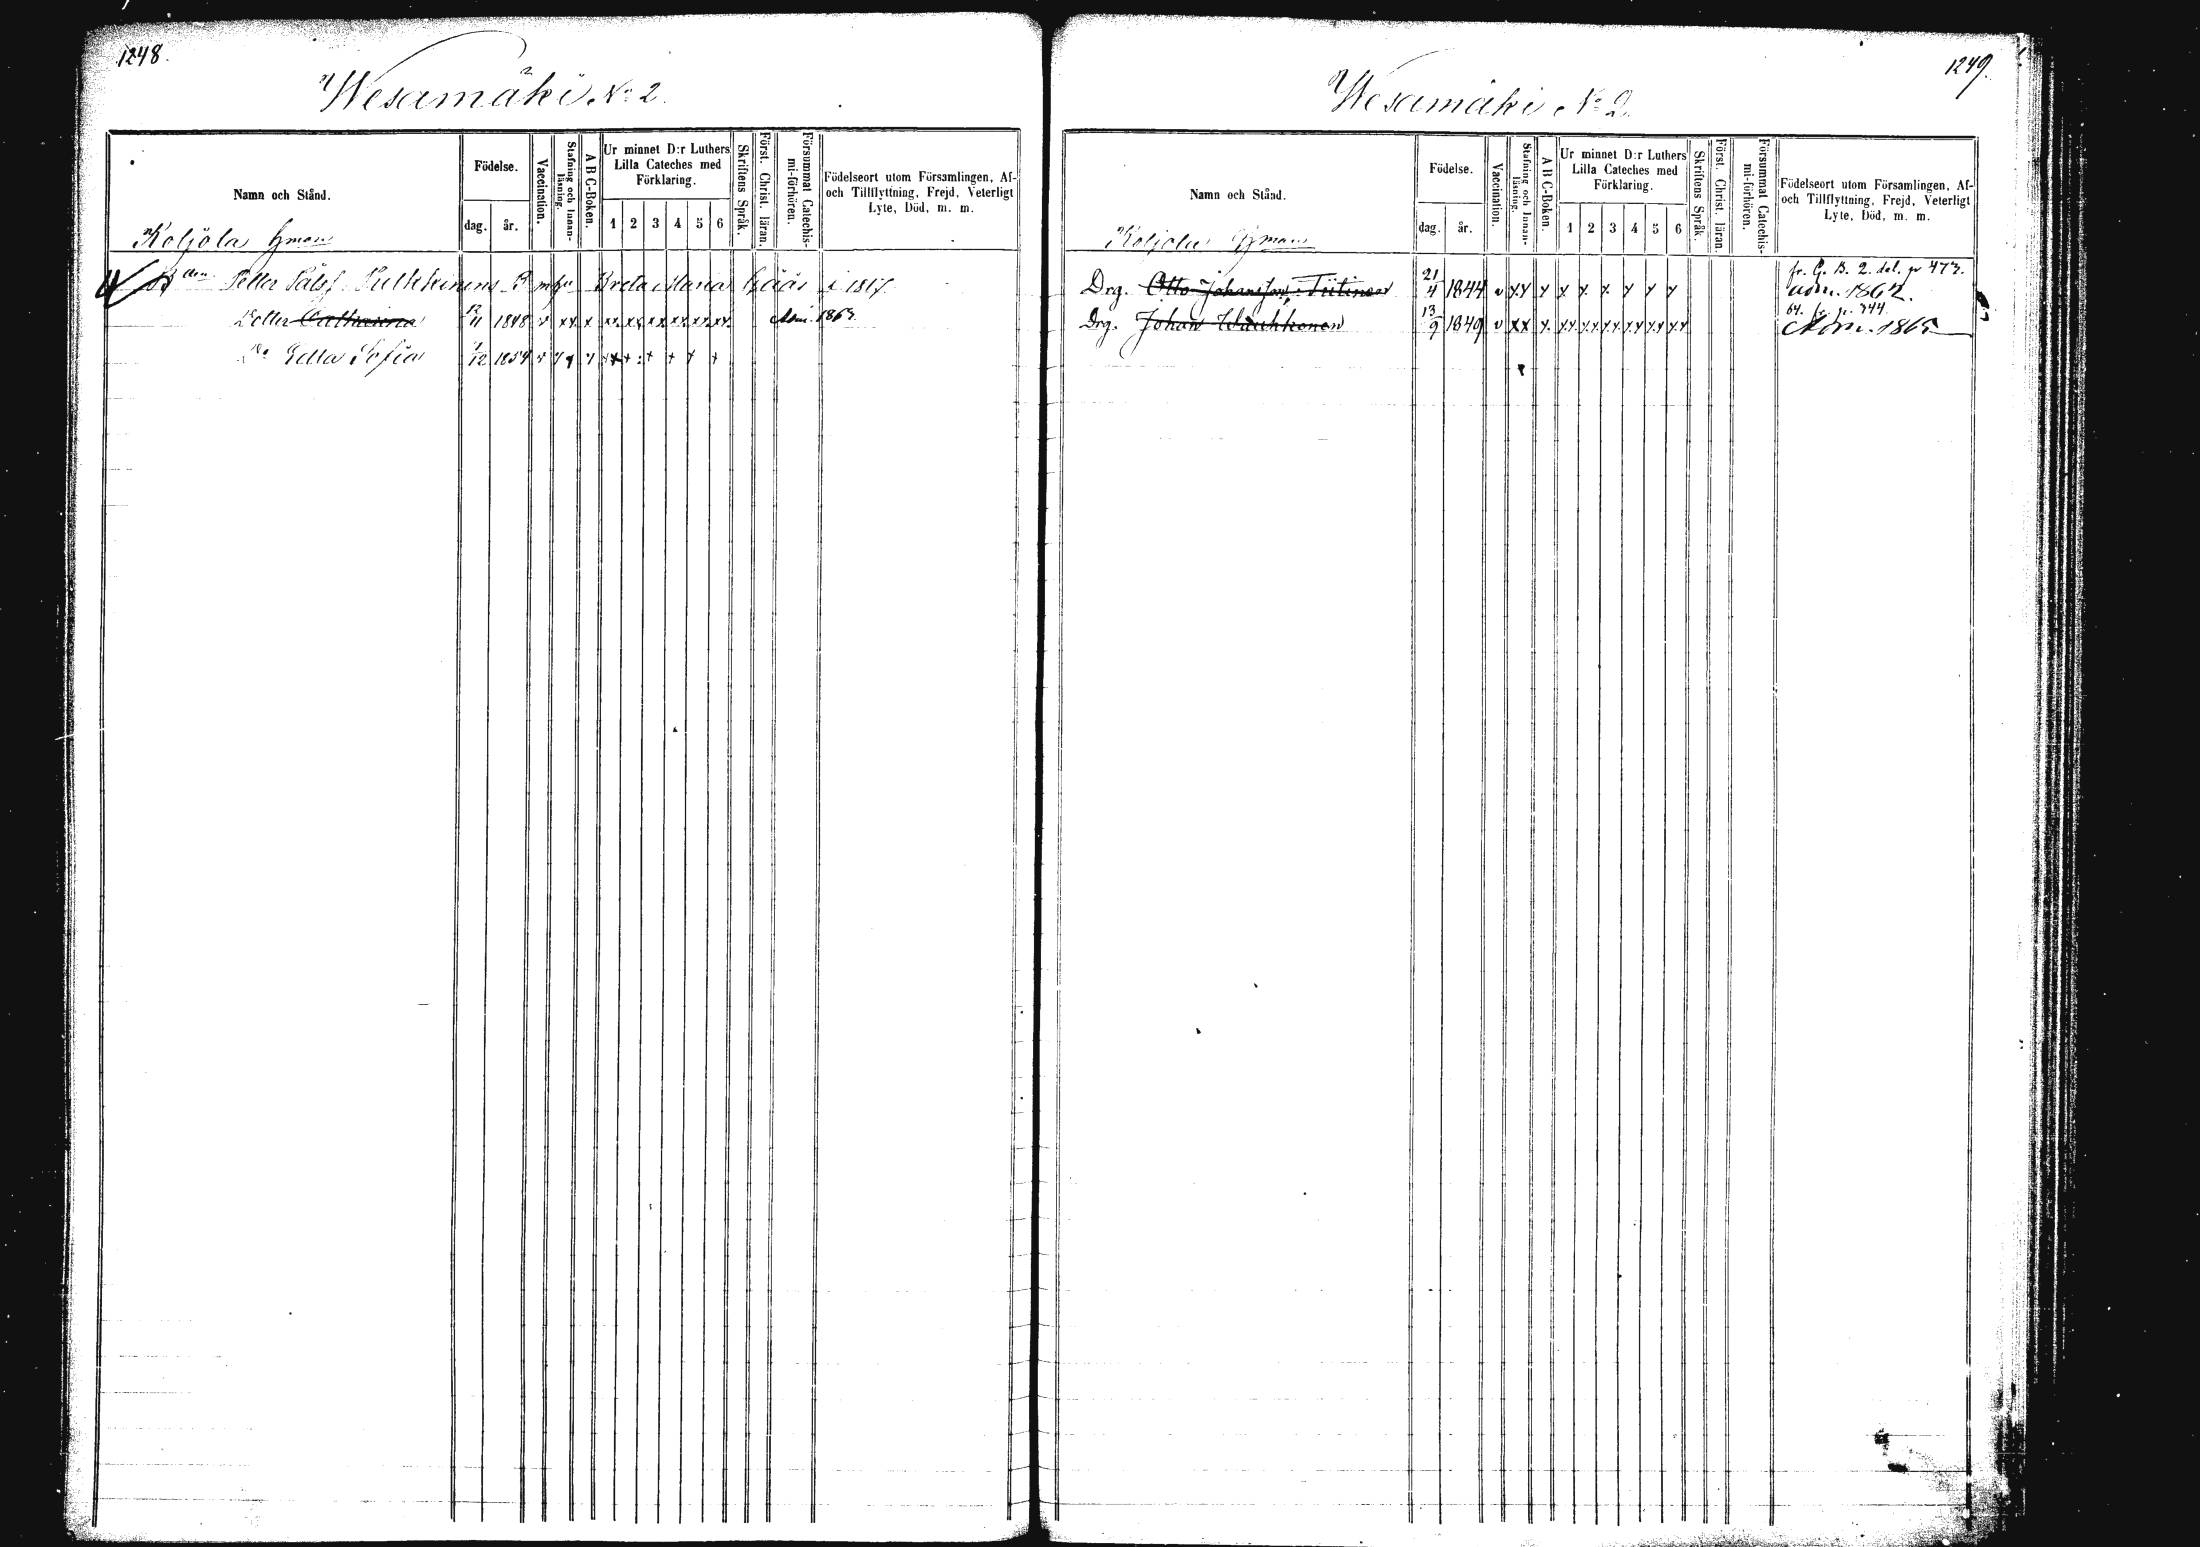 1248.
Wesamäki No 2.
Namn och Stånd.
Födelse.
dag. år.
Vaccination.
Stafning och Innan-läsning.
A B C-Boken.
Ur minnet D:r Luthers
Lilla Cateches med
Förklaring.
1 2 3 4 5 6
Skriftens Språk.
Först. Christ. läran.
Försummat Catechis-mi-förhören.
Födelseort utom Församlingen, Af-
och Tillflyttning, Frejd, Veterligt
Lyte, Död, m. m.
Koljola Hman
Petter Pålss. Pulkkinens Greta Maria i 1817
Dotter Catharina 12/11 1848 v xx x xx xx xx xx xx xx Adm. 1863
Do Edla Sofia 1/12 1854
1249.
Wesamäki No 2.
Namn och Stånd.
Födelse.
dag. år.
Vaccination.
Stafning och Innan-läsning.
A B C-Boken.
Ur minnet D:r Luthers
Lilla Cateches med
Förklaring.
1 2 3 4 5 6
Skriftens Språk.
Först. Christ. läran
Försummat Catechis-mi-förhören.
Födelseort utom Församlingen, Af-
och Tillflyttning, Frejd, Veterligt
Lyte, Död, m. m.
Koljola Hman
fr. G. B. 2. del. p 473.
Drg. Otto Johansson Tiitinen 21/4 1844 v xx x x x x x x x adm. 1862.
64. fr. p. 744.
Drg. Johan Wauhkonen 13/9 1849 v xx x xx xx xx xx xx xx Adm. 1865